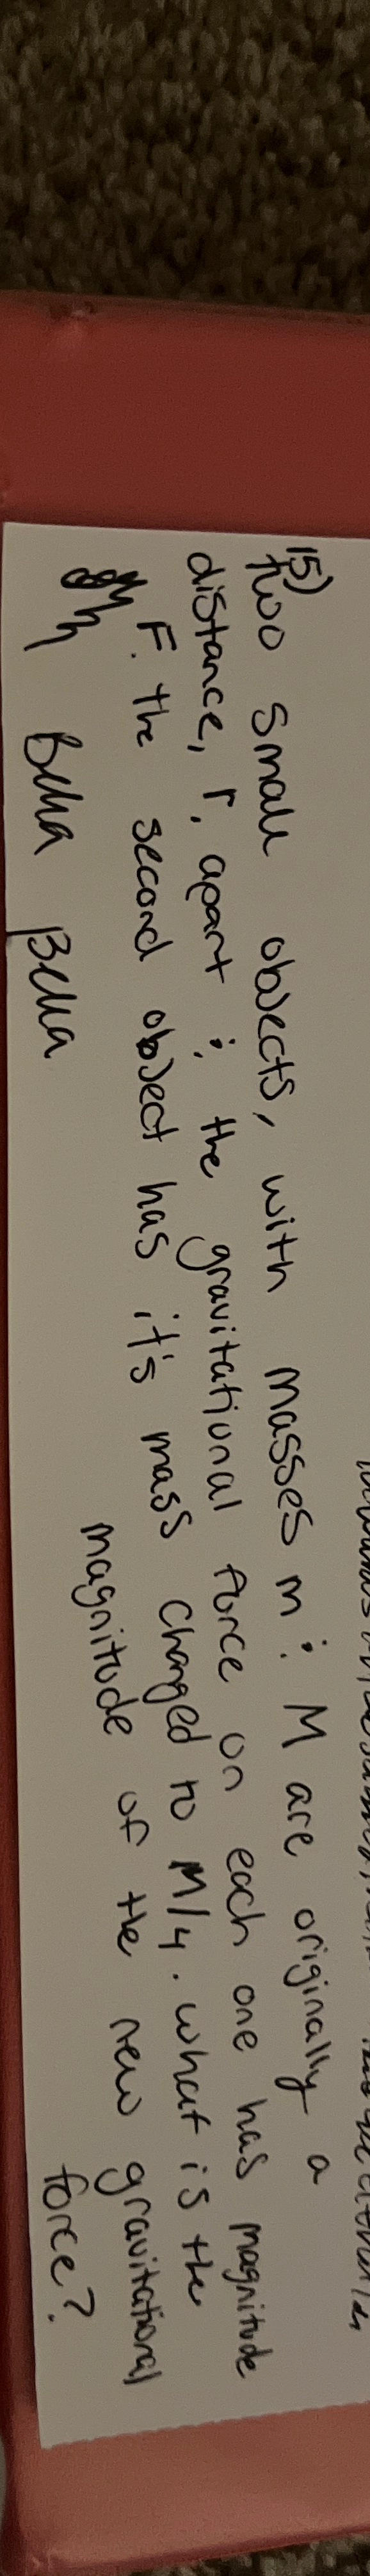 15)
two small objects, with masses m : M are originally a
distance, r, apart : the gravitational force on each one has magnitude
F. the second object has it's mass changed to M/4. what is the
magnitude of the new gravitational
force?